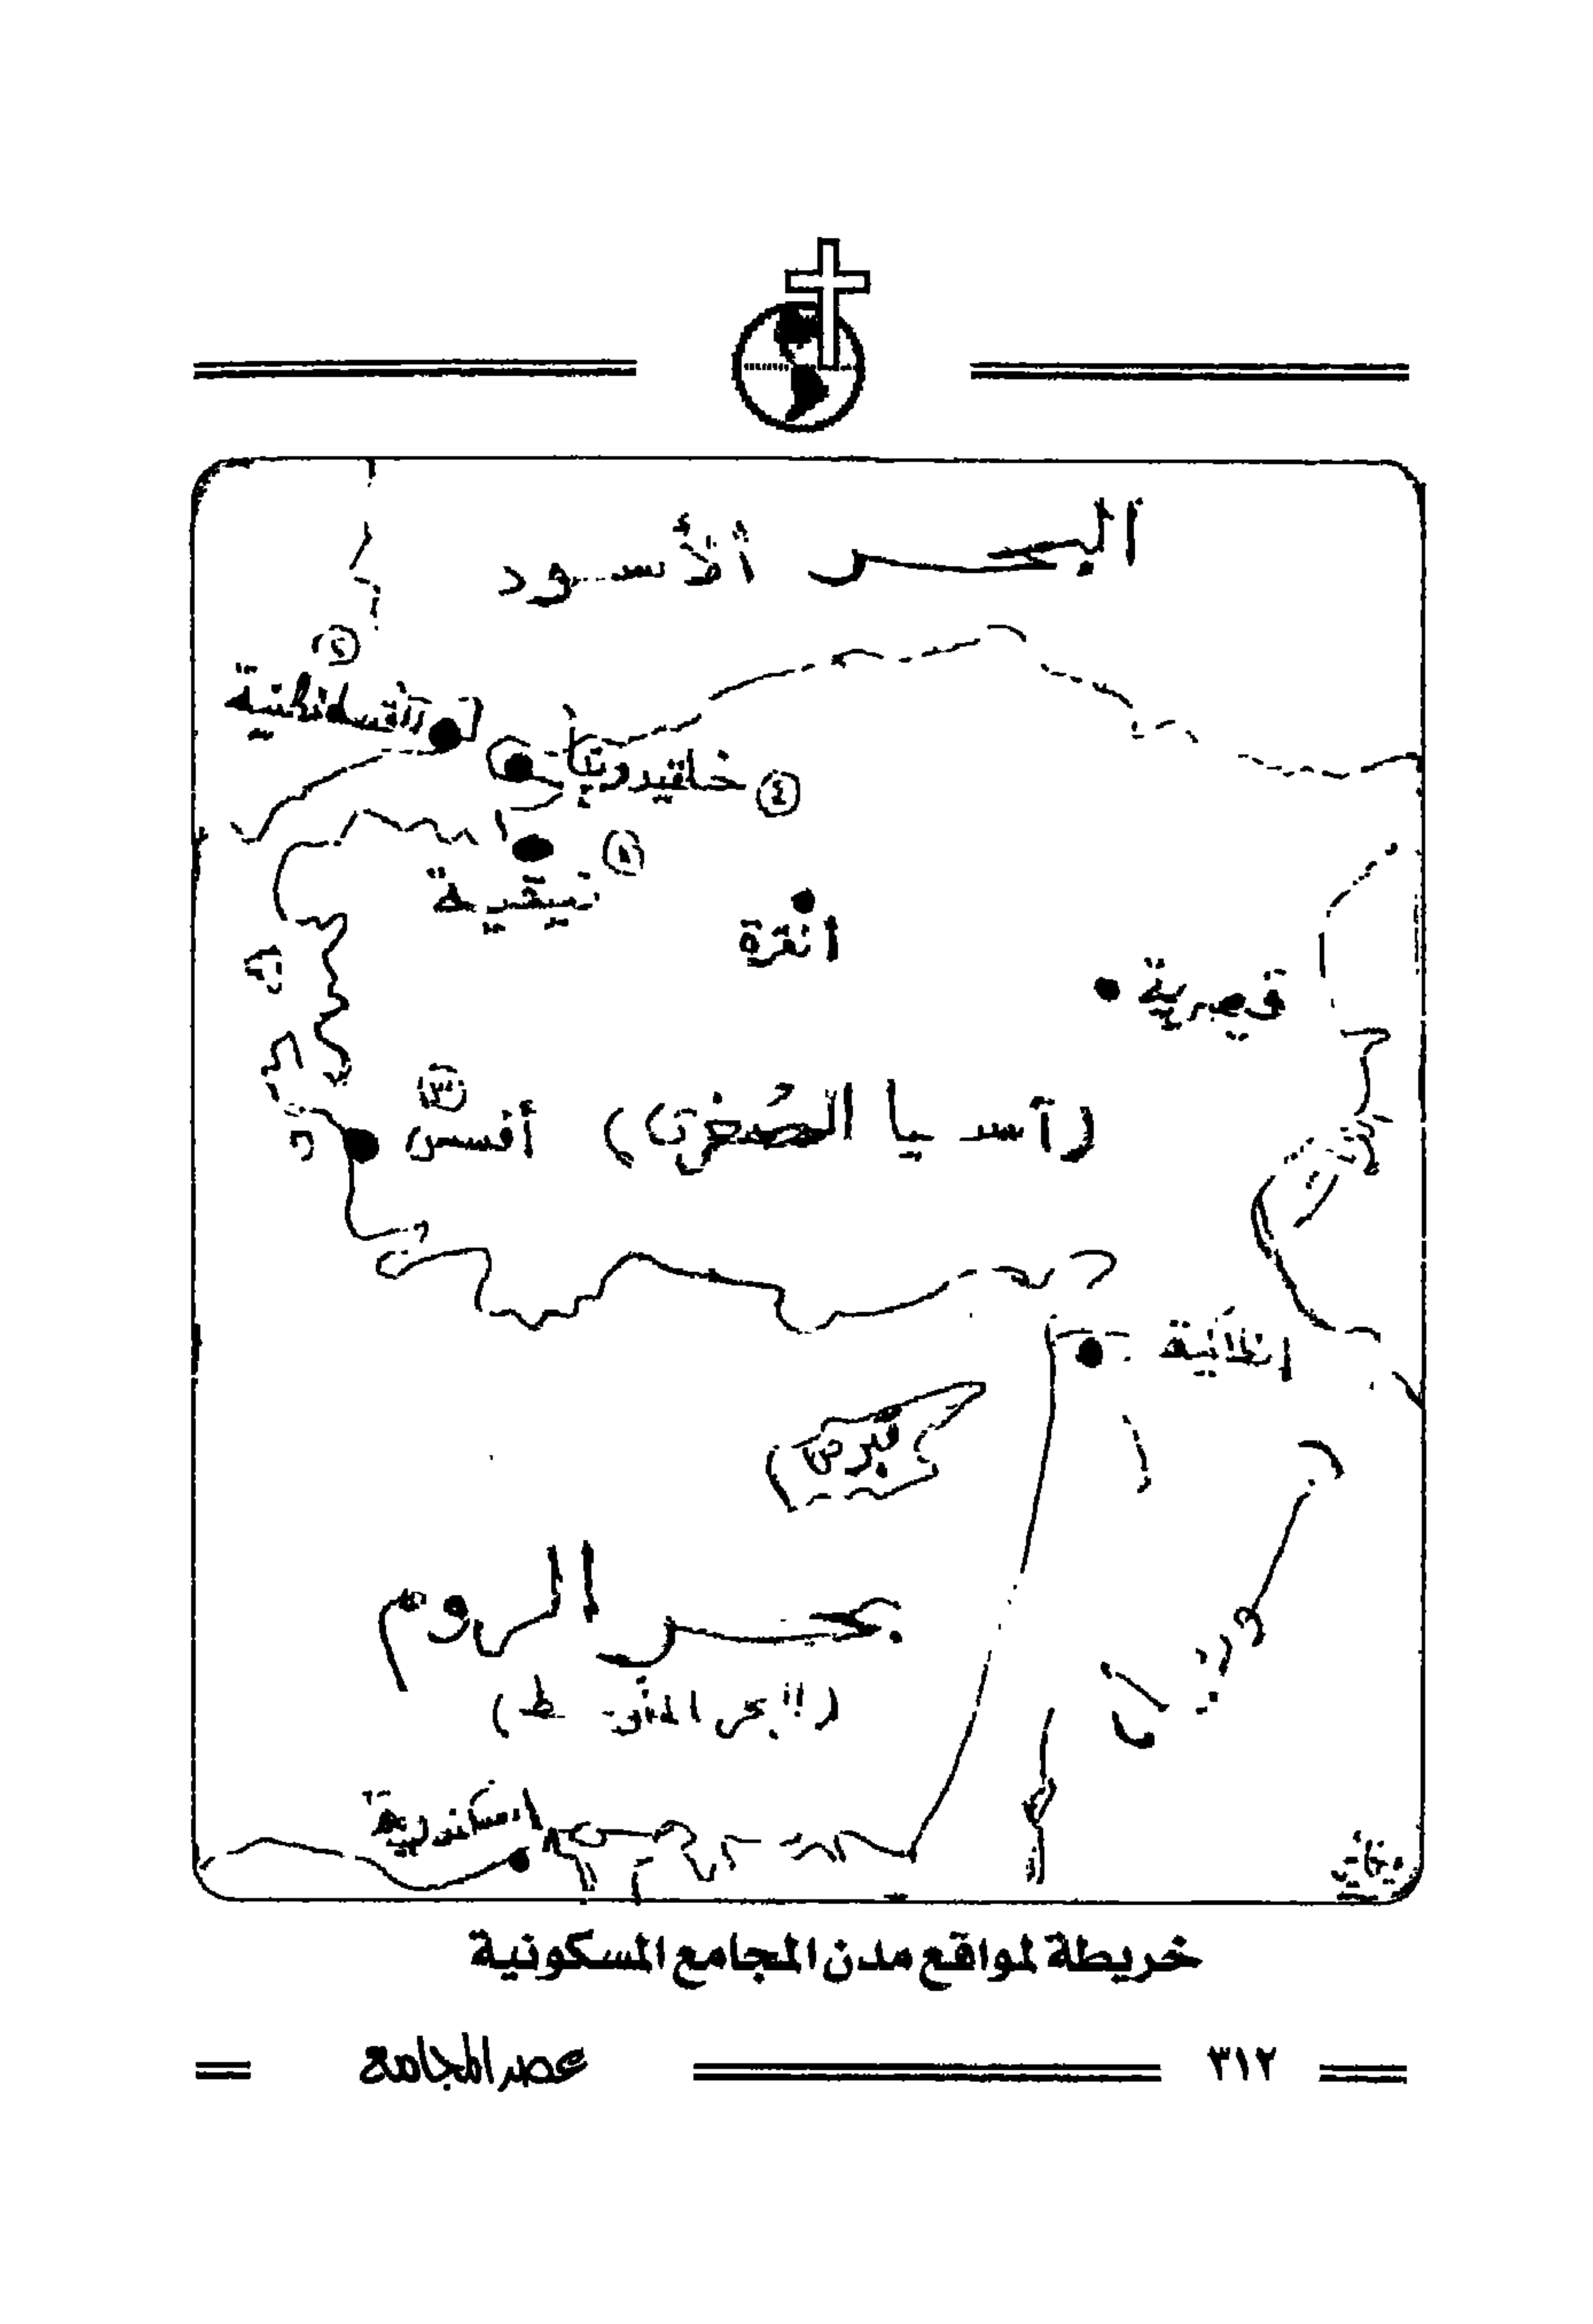 البحر الأسود
٢
القسطنطنية
خلقيدونية ٤
١
نيقية
انقرة
قيصرية
٣
(آسيا الصُغرى) أفسس
انطاكية
قبرص
بحر الروم
(البحر المتوسط)
اسكندرية
خريطة لمواقع مدن المجامع المسكونية
٣١٢ عصر المجامع